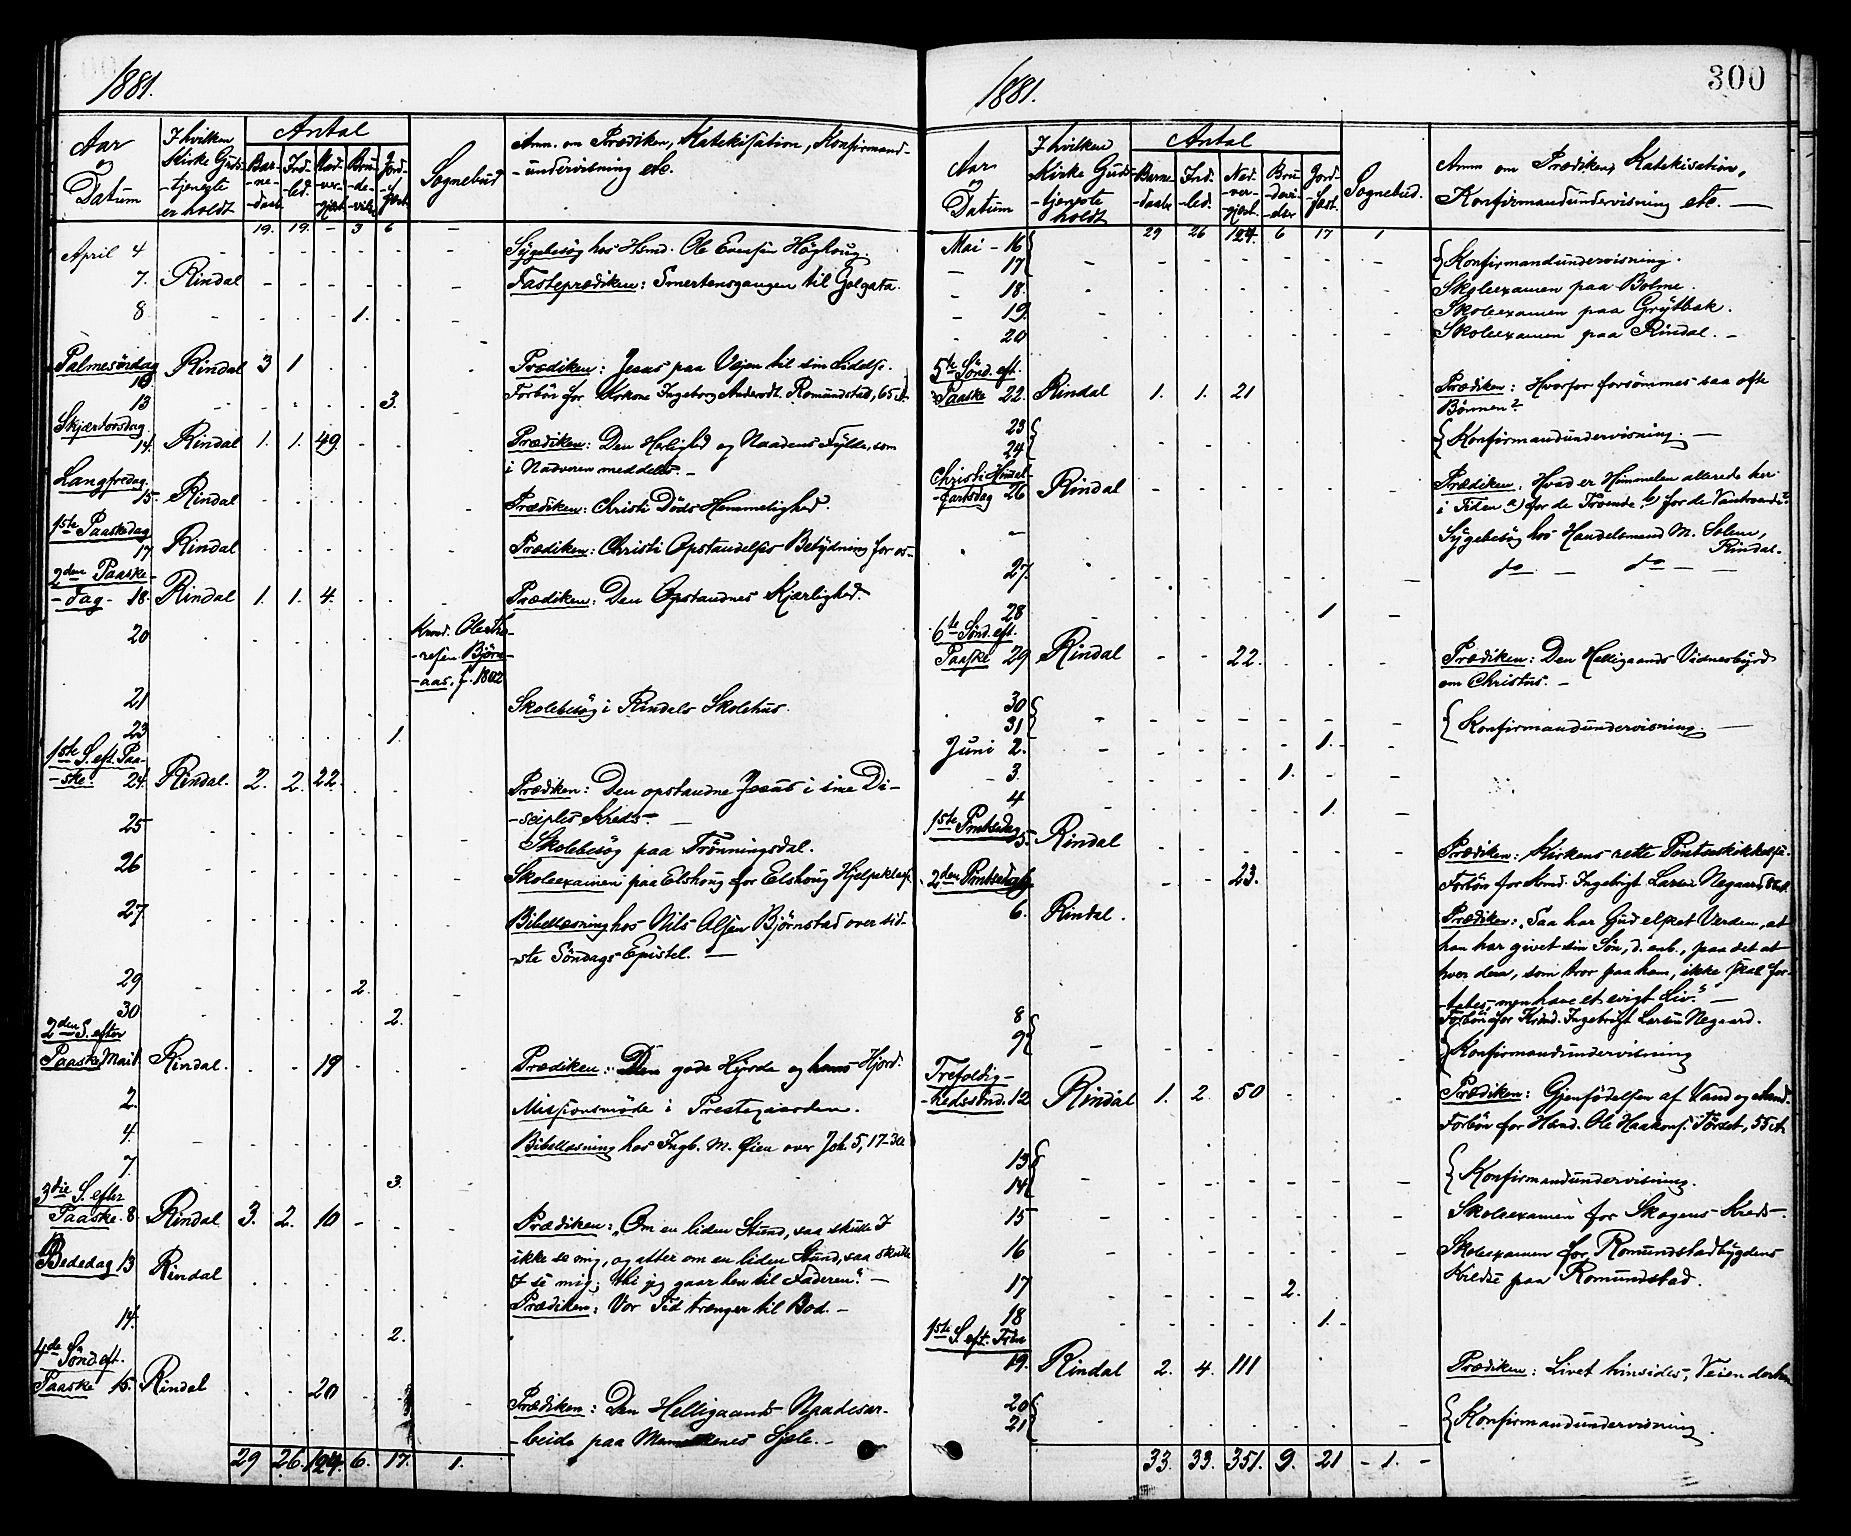 1881.
Aar
&
Datum
I hvilken
Kirke Guds-
-tjeneste
er holdt
Antal
Bar-
-ne-
-daab
Ind-
led.
Nad-
ver-
gjæst.
Bru-
-de-
-vielse
Jord-
-fæst.
Sognebud
Anm. om Prædiken, Katekisation, Konfirmand-
-undervisning etc.
19. 19. - 3 6 -
April 4 Sygebesøg hos Hsmd. Ole Evensen Høghoug.
7. Rindal Fasteprædiken: Smertensgangen til Golgata.
8 1.
Palmesöndag
10 Rindal 3 1 Prædiken: Jesus paa Vejen til sin Lidelse.
13 3. Forbön for Kirkone Ingeborg Andersdt. Romundstad, 65 A.
Skjærtorsdag
14. Rindal 1. 1. 49. Prædiken: Den Herlighed og Naadens Fylde, som
i Nadveren meddeles. -
Langfredag.
15. Rindal Prædiken: Christi Döds Hemmelighed.
1ste Paaskedag
17. Rindal Prædiken: Christi Opstandelses Betydning for os-
2den Paaske-
-dag- 18. Rindal 1. 1. 4. Prædiken: Den Opstandnes Kjærlighed.
20 Kmd. Ole
Björn-
-aas, f. 1802
21 Skolebesög i Rindals Skolehus.
23 1.
1ste S. eft. Paa-
-ske. 24. Rindal. 2. 2. 22. Prædiken: Den opstandne Jesus i sine Di-
-sciples Kreds. -
25 Skolebesög paa Trönningsdal.
26 Skoleexamen paa Elshoug for Elshoug Hjelpeklasse
27. Bibellæsning hos Nils Olsen Bjørnstad over sid-
-ste Söndags Epistel. -
29 2.
30 2.
2den S. efter
Paaske Mai 1. Rindal. 19 Prædiken: Den gode Hyrde og hans Hjord.
2. Missionsmöde i Prestegaarden.
4. Bibellæsning hos Ingb. M. Øien over Joh. 5, 17-30
7 3.
3die S. efter
Paaske. 8. Rindal 3. 2. 10 Prædiken: "Om en liden Stund, saa skulle I
ikke se mig, og atter om en liden Stund, saa skulle
I se mig; thi jeg gaar hen til Faderen". -
Bededag 13 Rindal Prædiken: Vor Tid trænger til Bod. -
14. 2.
4de Sönd. eft.
Paaske 15. Rindal 20 Prædiken: Den Helligaands Naadesar-
-beide paa Menneskenes Sjæle. -
29 26. 124. 6. 17. 1.
1881.
300
Aar
&
Datum
I hvilken
Kirke Guds-
-tjeneste
holdt
Antal
Barne-
-daab
Ind-
-led.
Nad-
-ver-
gjæst.
Bru-
-devi-
elser
Jord-
fæst.
Sognebud.
Anm om Prædiken, Katekisation,
Konfirmandundervisning etc. -
29 26 124. 6 17 1
Mai - 16 { Konfirmandundervisning.
17
18. Skoleexamen paa Bolme.
19. Skoleexamen paa Grytbak.
20 Skoleexamen paa Rindal. -
5te Sönd. eft.
Paaske 22. Rindal 1. 1. 21 Prædiken: Hvorfor forsömmes saa ofte
Bönnen?
23
24 { Konfirmandundervisning. -
Christi Himmel-
-fartsdag 26 Rindal Prædiken: Hvad er Himmelen allerede her
i Tiden a) for de Troende b) for de Vantroende?
Sygebesög hos Handelsmand M. Solem,
Rindal.
27. do - do - -
28 1
6te Sönd. eft.
Paaske 29 Rindal - - 22. Prædiken: Den Helligaands Vidnesbyrd
om Christus. -
30
31 { Konfirmandundervisning -
Juni 2. 1.
3. 1.
4 1.
1ste Pintsedag
5. Rindal Prædiken: Kirkens rette Pintseskikkelse.
Forbön for Kmd. Ingebrigt Larsen Negaard
2den Pintsedag 23.
6. Rindal. Prædiken: "Saa har Gud elsket Verden, at
han har givet sin Sön, d. enb., paa det at
hver den, som tror paa ham, ikke skal for-
-tabes, men have et evigt Liv." -
8 Forbön for Kmd. Ingebrigt Larsen Negaard.
9 { Konfirmandundervisning
Trefoldig-
-hedssönd. 12 Rindal 1. 2. 50 Prædiken: Gjenfödelsen af Vand og Aand.
Forbön for Hsmd. Ole Haakons. Törset, 55 A.
13
14 { Konfirmandundervisning.
15 Skoleexamen for Skogens Kreds -.
16 Skoleexamen for Romundstadbygdens
Kreds paa Romundstad.
17 2.
18 1.
1ste S. eft. Tref.
19. Rindal 2. 4. 111 Prædiken: Livet hinsides, Veien derhen
20
21 { Konfirmandundervisning.
33. 33. 351. 9. 21 - 1. -